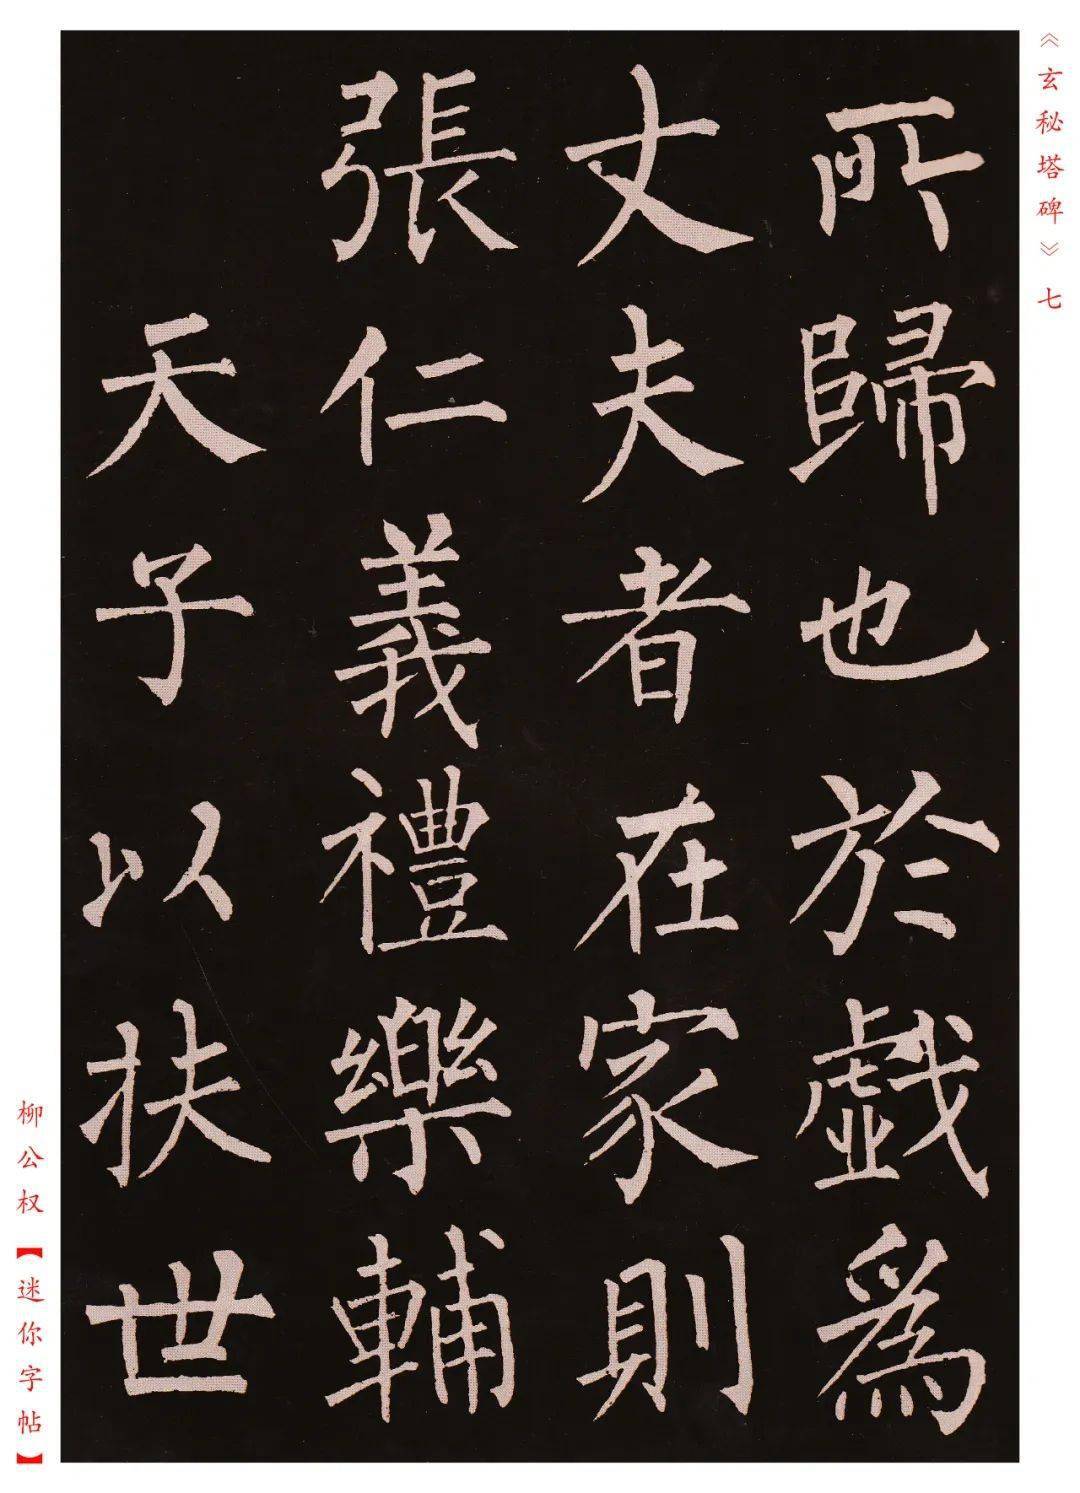 《玄秘塔碑》七
所歸也於戲為
丈夫者在家則
張仁義禮樂輔
天子以扶世
柳公权【迷你字帖】